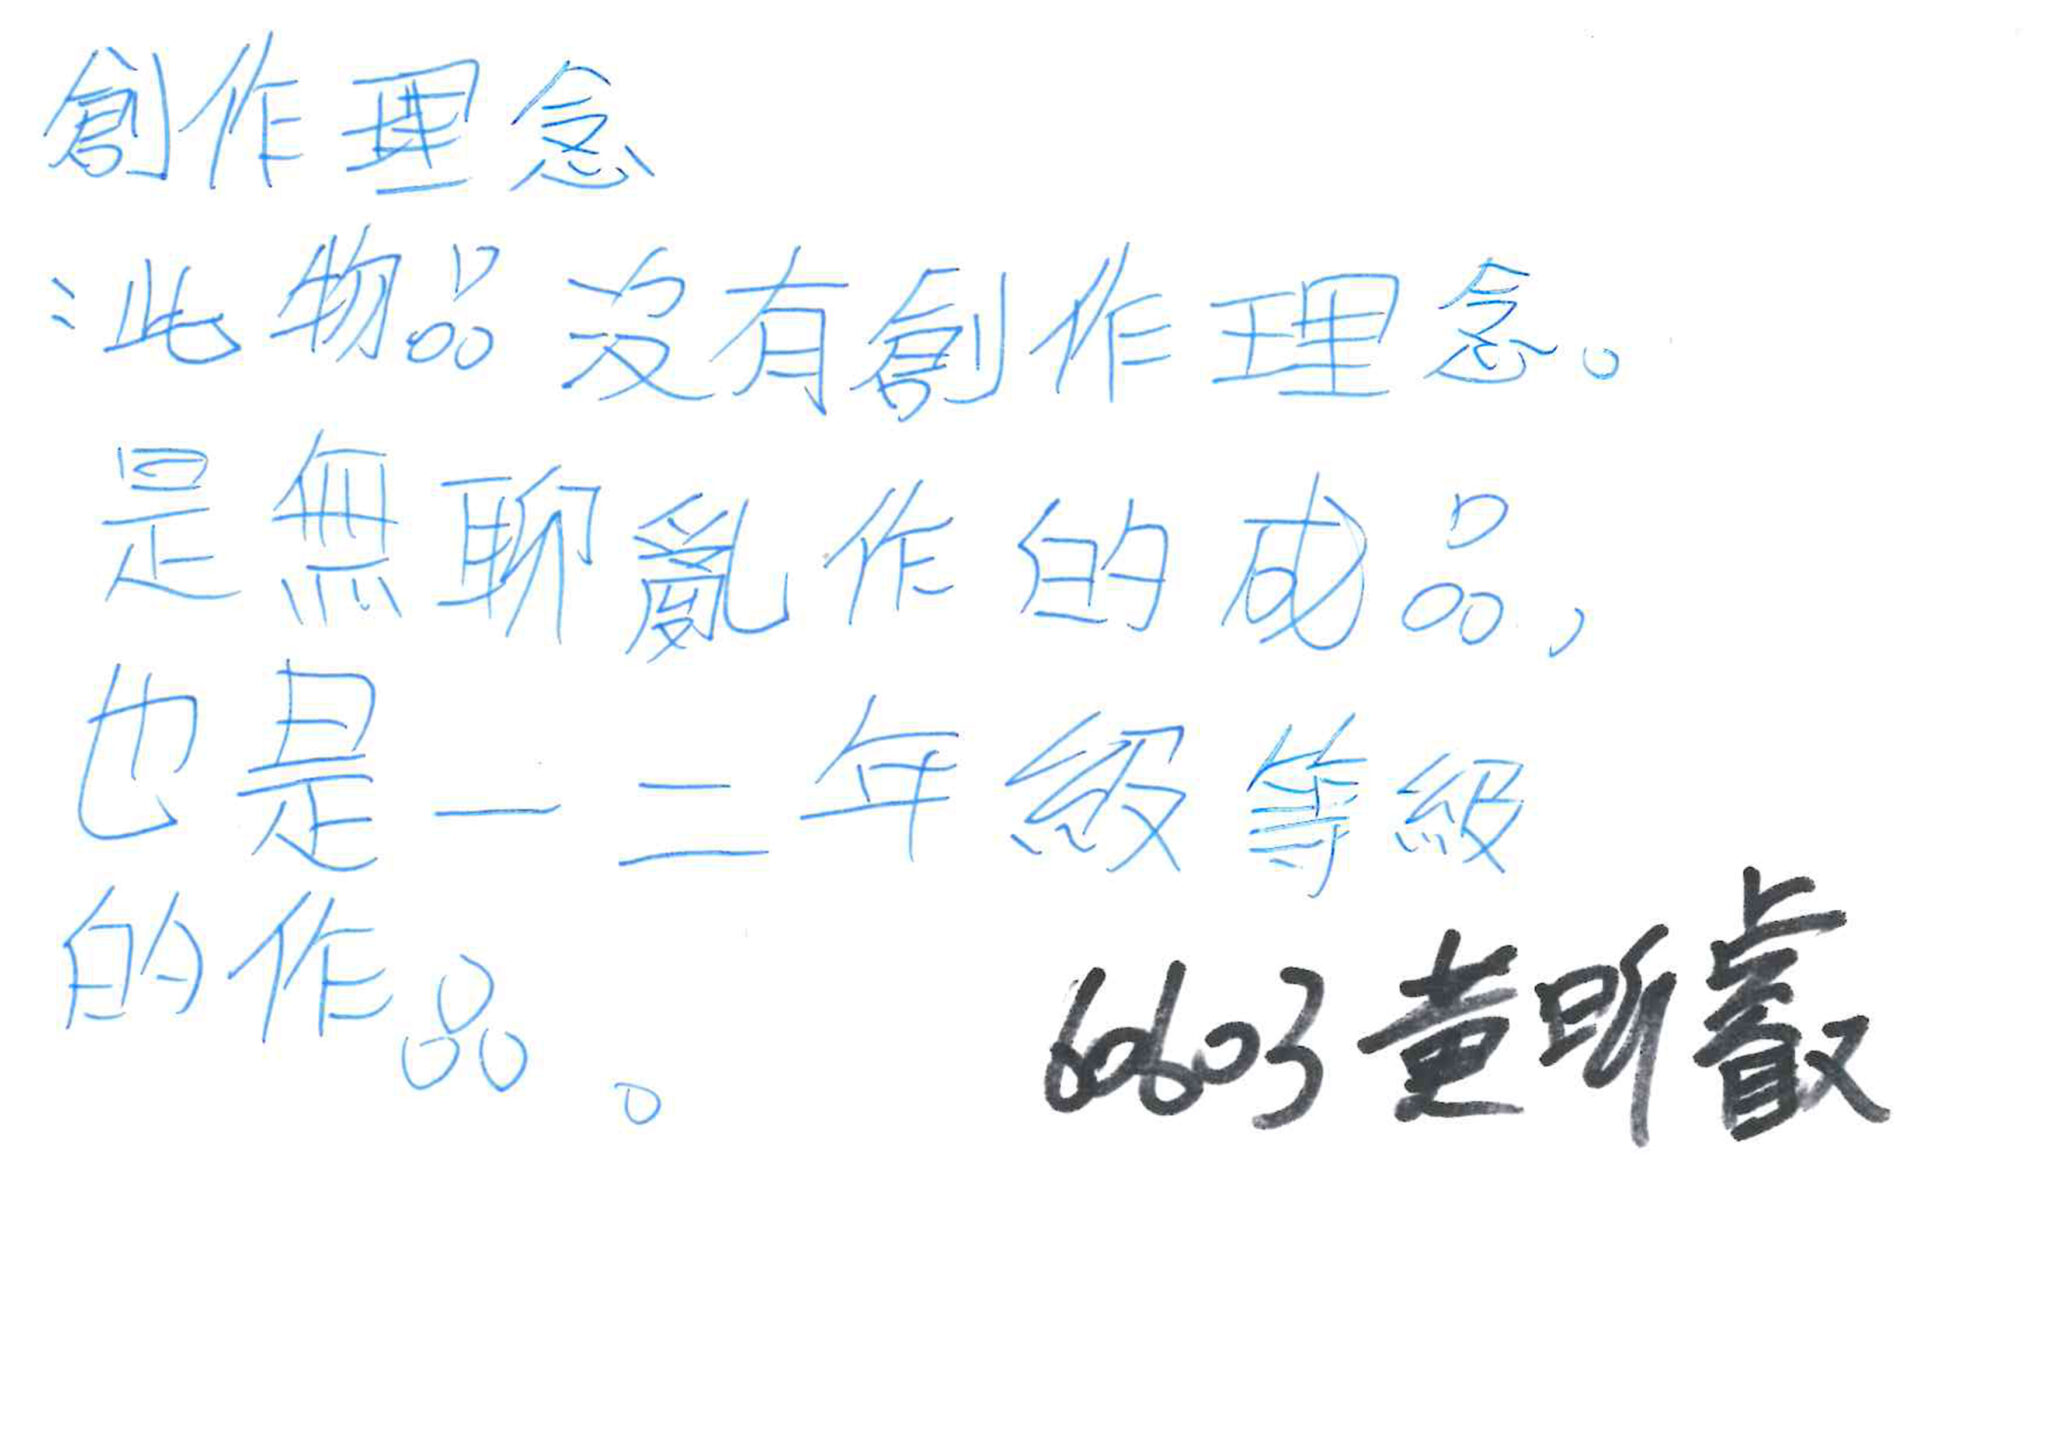 創作理念
:此物品沒有創作理念。
是無聊亂作的成品,
也是一二年級等級
的作品。
60603黃昕叡